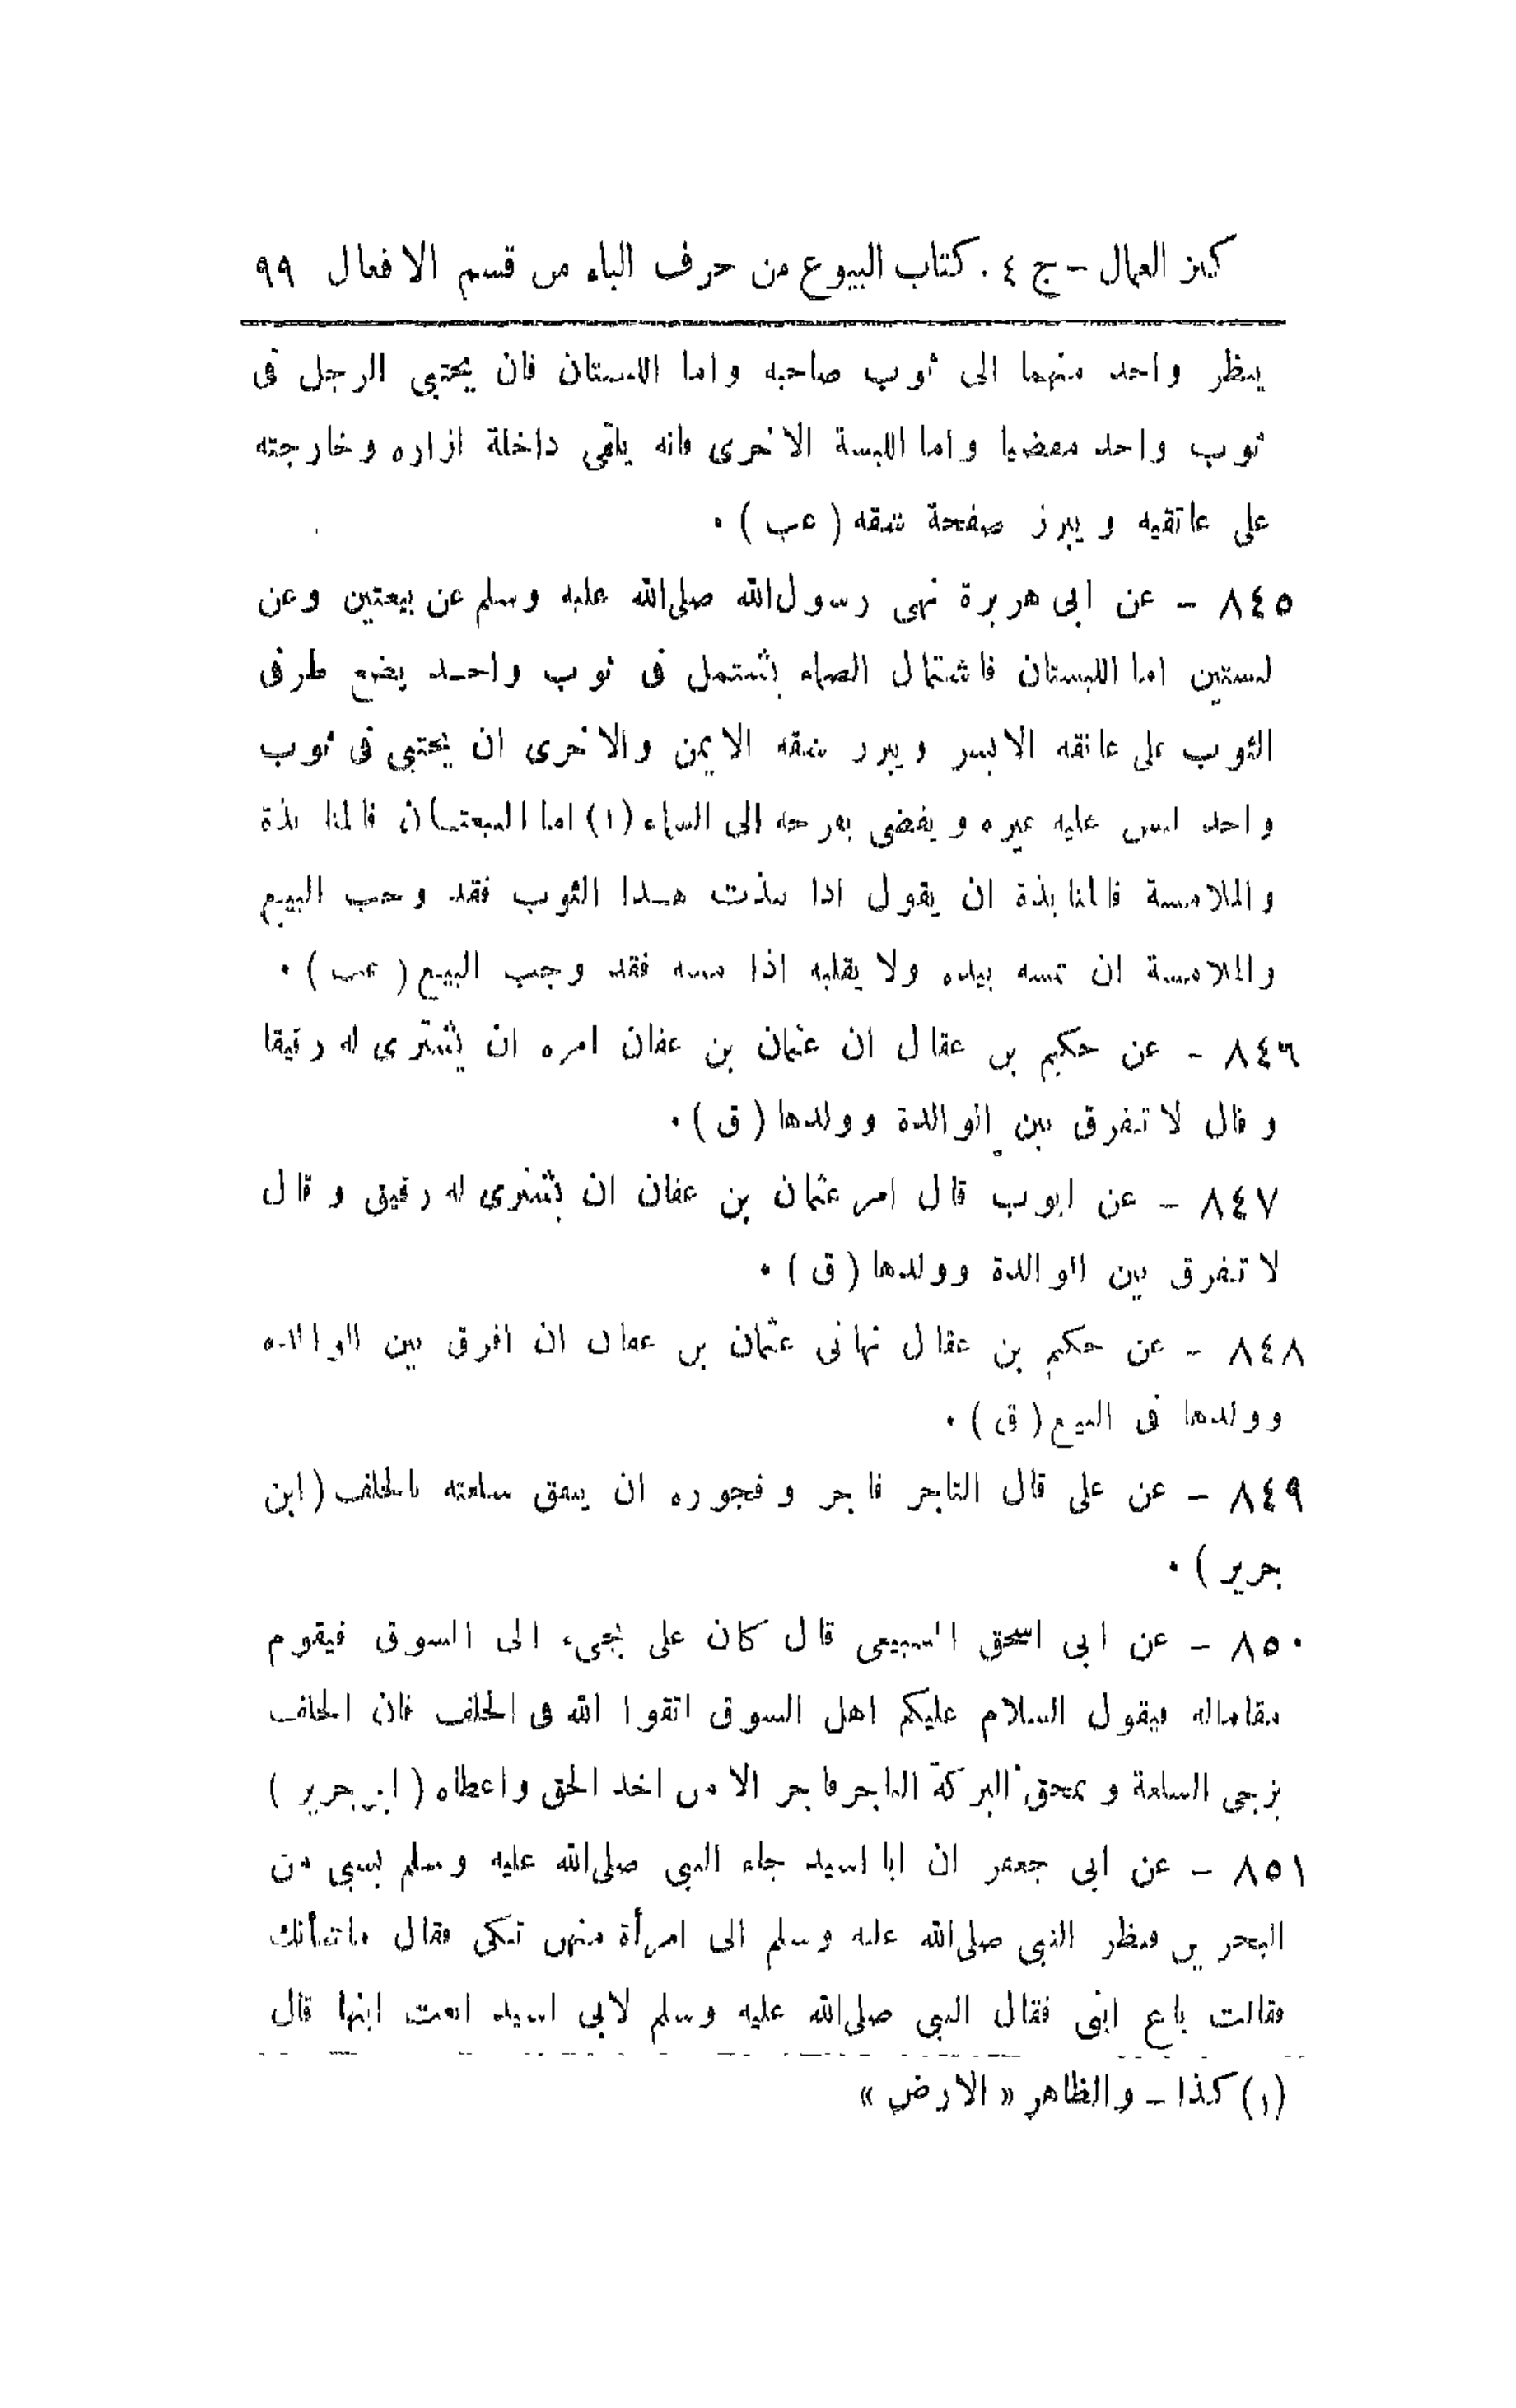 كنز العمال - ج ٤ . كتاب البيوع من حرف الباء من قسم الافعال ٩٩
ينظر واحد منهما الى ثوب صاحبه واما اللبستان فان يحتبى الرجل فى
ثوب واحد مفضيا واما اللبسة الاخرى فانه يلقى داخلة ازاره وخارجته
على عاتقيه ويبرز صفحة شقه (عب) ٠
٨٤٥ - عن ابى هريرة نهى رسول الله صلى الله عليه وسلم عن بيعتين وعن
لبستين اما اللبستان فاشتمال الصماء يشتمل فى ثوب واحد يضع طرفى
الثوب على عاتقه الايسر ويبرز شقه الايمن والاخرى ان يحتبى فى ثوب
واحد ليس عليه غيره ويفضى بفرجه الى السماء (١) اما البيعتان فالمنابذة
والملامسة فالمنابذة ان يقول اذا نبذت هذا الثوب فقد وجب البيع
والملامسة ان تمسه بيده ولا يقلبه اذا مسه فقد وجب البيع (عب) ٠
٨٤٦ - عن حكيم بن عقال ان عثمان بن عفان امره ان يشترى له رقيقا
وقال لا تفرق بين الوالدة وولدها (ق) ٠
٨٤٧ - عن ايوب قال امر عثمان بن عفان ان يشترى له رقيق وقال
لا تفرق بين الوالدة وولدها (ق) ٠
٨٤٨ - عن حكيم بن عقال نهانى عثمان بن عفان ان افرق بين الوالده
وولدها فى البيع (ق) ٠
٨٤٩ - عن على قال التاجر فاجر وفجوره ان ينفق سلعته بالحلف (ابن
جرير) ٠
٨٥٠ - عن ابى اسحق السبيعى قال كان على يجىء الى السوق فيقوم
مقاماله فيقول السلام عليكم اهل السوق اتقوا الله فى الحلف فان الحلف
يزجى السلعة ويمحق البركة التاجر فاجر الا من اخذ الحق واعطاه (ابن جرير)
٨٥١ - عن ابى جعفر ان ابا اسيد جاء النبى صلى الله عليه وسلم بسبى من
البحرين فنظر النبى صلى الله عليه وسلم الى امرأة منهن تبكى فقال ماشأنك
فقالت باع ابنى فقال النبى صلى الله عليه وسلم لابى اسيد ابعت ابنها قال
(١) كذا - والظاهر « الارض »